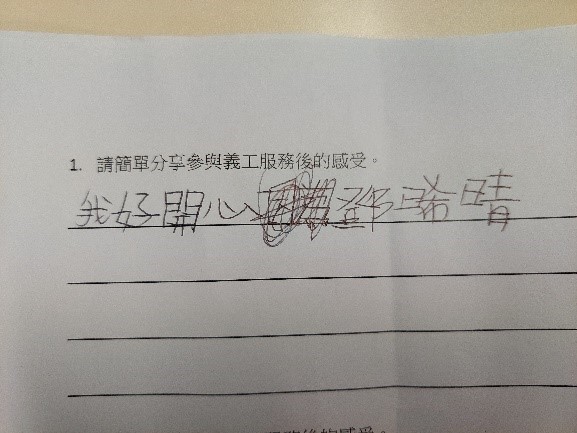 1. 請簡單分享參與義工服務後的感受。
我好開心鄧晞晴